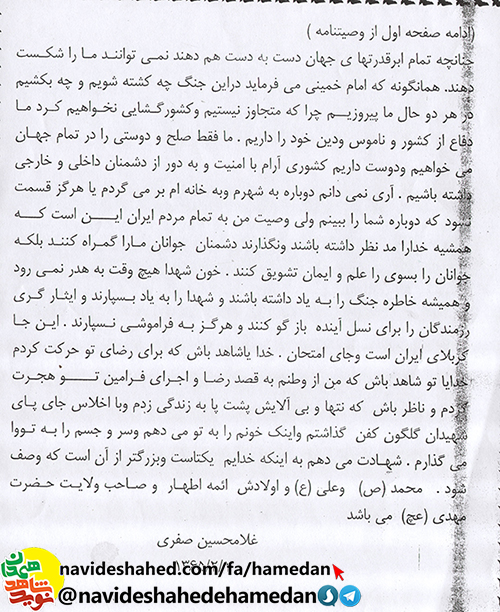 (ادامه صفحه اول از وصیتنامه )
چنانچه تمام ابرقدرتها ی جهان دست به دست هم دهند نمی توانند ما را شکست
دهند. همانگونه که امام خمینی می فرماید دراین جنگ چه کشته شویم و چه بکشیم
در هر دو حال ما پیروزیم چرا که متجاوز نیستیم وکشورگشایی نخواهیم کرد ما
دفاع از کشور و ناموس ودین خود را داریم . ما فقط صلح و دوستی را در تمام جهان
می خواهیم ودوست داریم کشوری آرام با امنیت و به دور از دشمنان داخلی و خارجی
داشته باشیم . آری نمی دانم دوباره به شهرم وبه خانه ام بر می گردم یا هرگز قسمت
نسود که دوباره شما را ببینم ولی وصیت من به تمام مردم ایران ایـن است کـه
همشیه خدارا مد نظر داشته باشند ونگذارند دشمنان جوانان مـارا گمراه کننـد بلکـه
جوانان را بسوی را علم و ایمان تشویق کنند . خون شهدا هیچ وقت به هدر نمی رود
و همیشه خاطره جنگ را بـه یاد داشته باشند و شهدا را به یاد بسپارند و ایثار گری
رزمندگان را برای نسل آینده باز گو کنند و هرگز بـه فراموشی نسپارند . این جا
کربلای ایران است وجای امتحان . خدا یاشاهد باش که برای رضای تو حرکت کردم
خدایا تو شاهد باش که من از وطنم به قصد رضا و اجرای فرامین تـو هجرت
کردم و ناظر باش که نتها و بی آلایش پشت پا به زندگی زدم وبا اخلاس جای پای
شهیدان گلگون کفن گذاشتم واینک خونم را به تو می دهم وسر و جسم را به تووا
می گذارم . شهادت می دهم به اینکه خدایم یکتاست وبزرگتر از آن است که وصف
شود . محمد (ص) وعلی (ع) و اولادش ائمه اطهار و صاحب ولایت حضرت
مهدی (عج) می باشد
غلامحسین صفری
navideshahed.com/fa/hamedan
@navideshahedehamedan
نوید شاهد